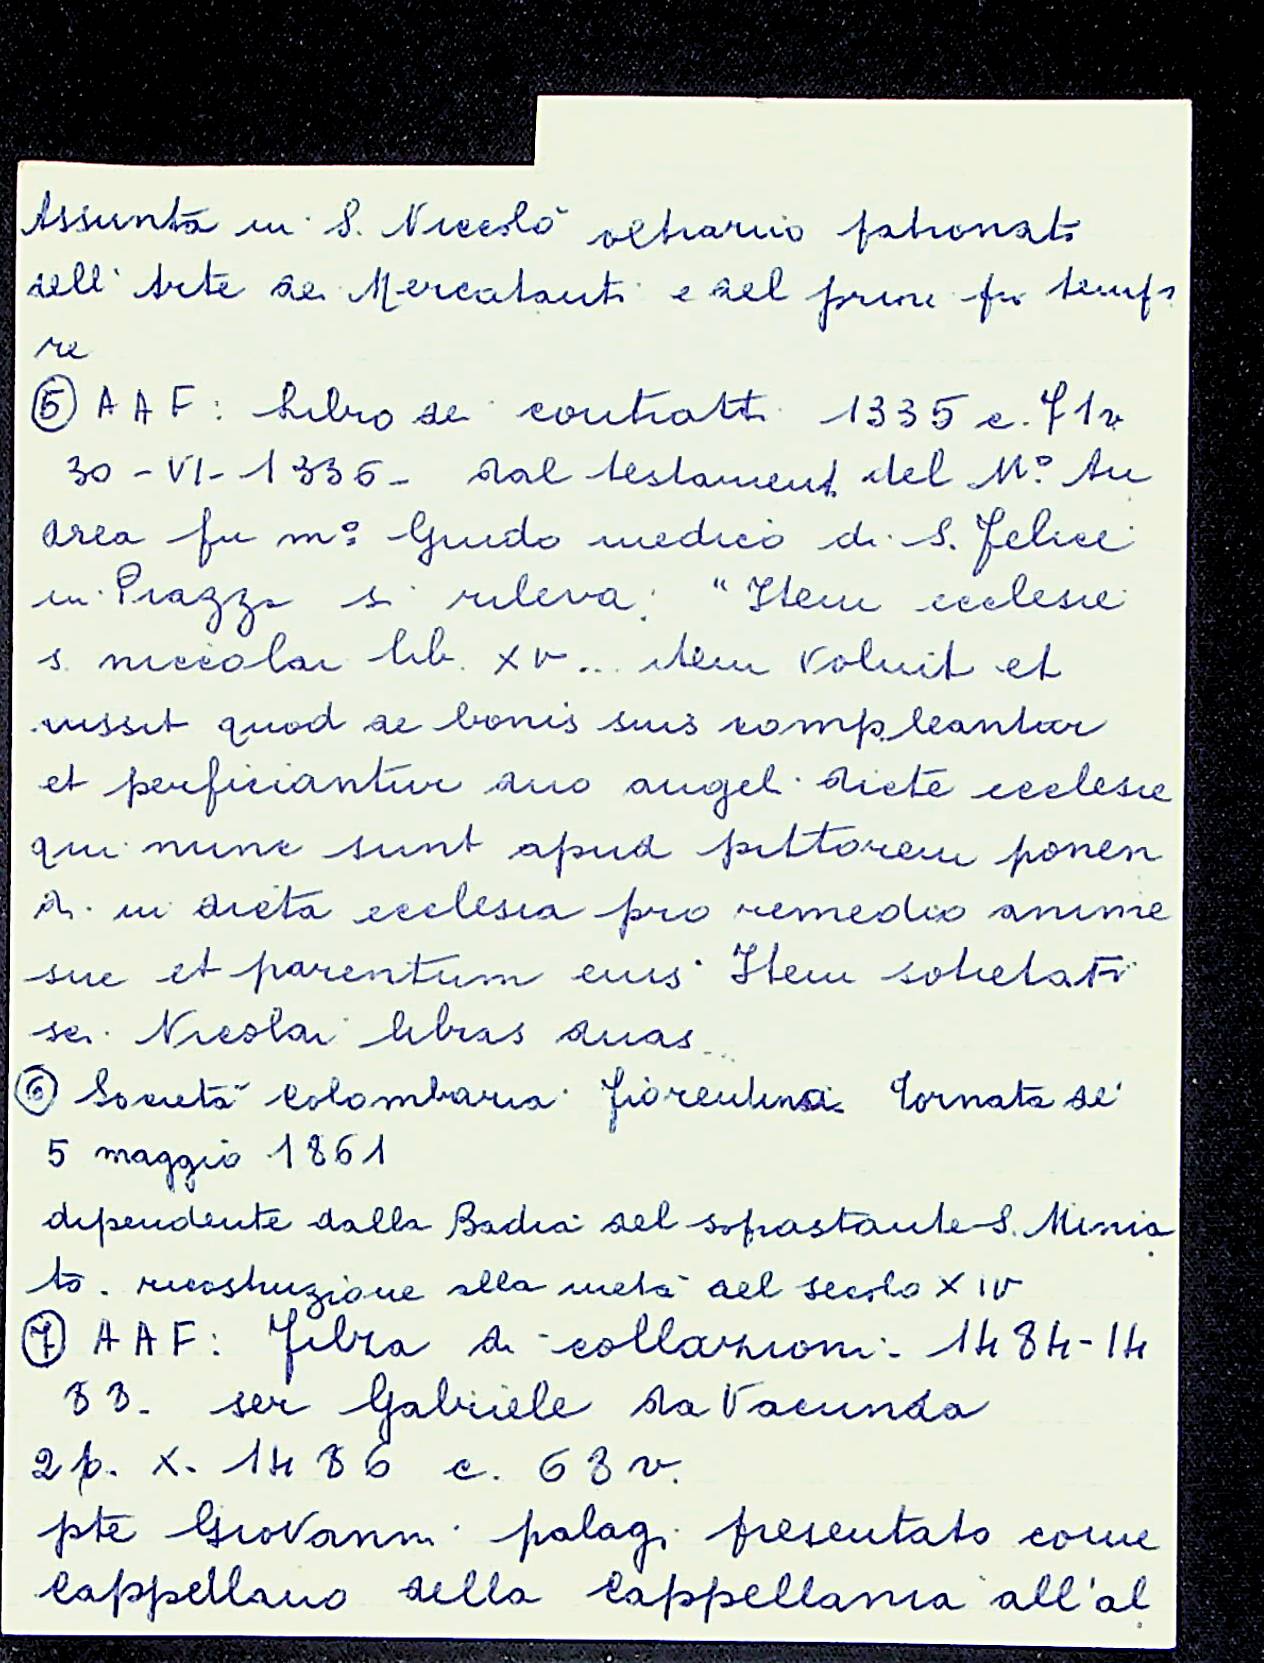 Assunta in S. Niccolò oltrarno patronato
dell'Arte dei Mercatanti e del prim fu tempo
re
⑤ AAF: Libro dei contratti 1335 c. 71v
30-VI-1336- dal testament del M° An
drea fu m° Guido medico di S. Felice
in Piazza si rileva: "Item ecclesie
s. niccolai lib. XV... item voluit et
iussit quod de bonis suis compleantur
et perficiantur duo angeli dicte ecclesie
qui nunc sunt apud pittorem ponen
di in dicta ecclesia pro remedio anime
sue et parentum eius Item sotietati
sci. Nicolai libras duas...
⑥ Società Colombaria Fiorentina Tornata de'
5 maggio 1861
dipendente dalla Badia del soprastante S. Minia
to. ricostruzione alla metà del secolo XIV
⑦ AAF: Filza di collazioni. 1484-14
88. ser Gabriele da Vacunda
2p. X. 1486 c. 68v.
pte Giovanni palagi presentato come
Cappellano della Cappellania all'al